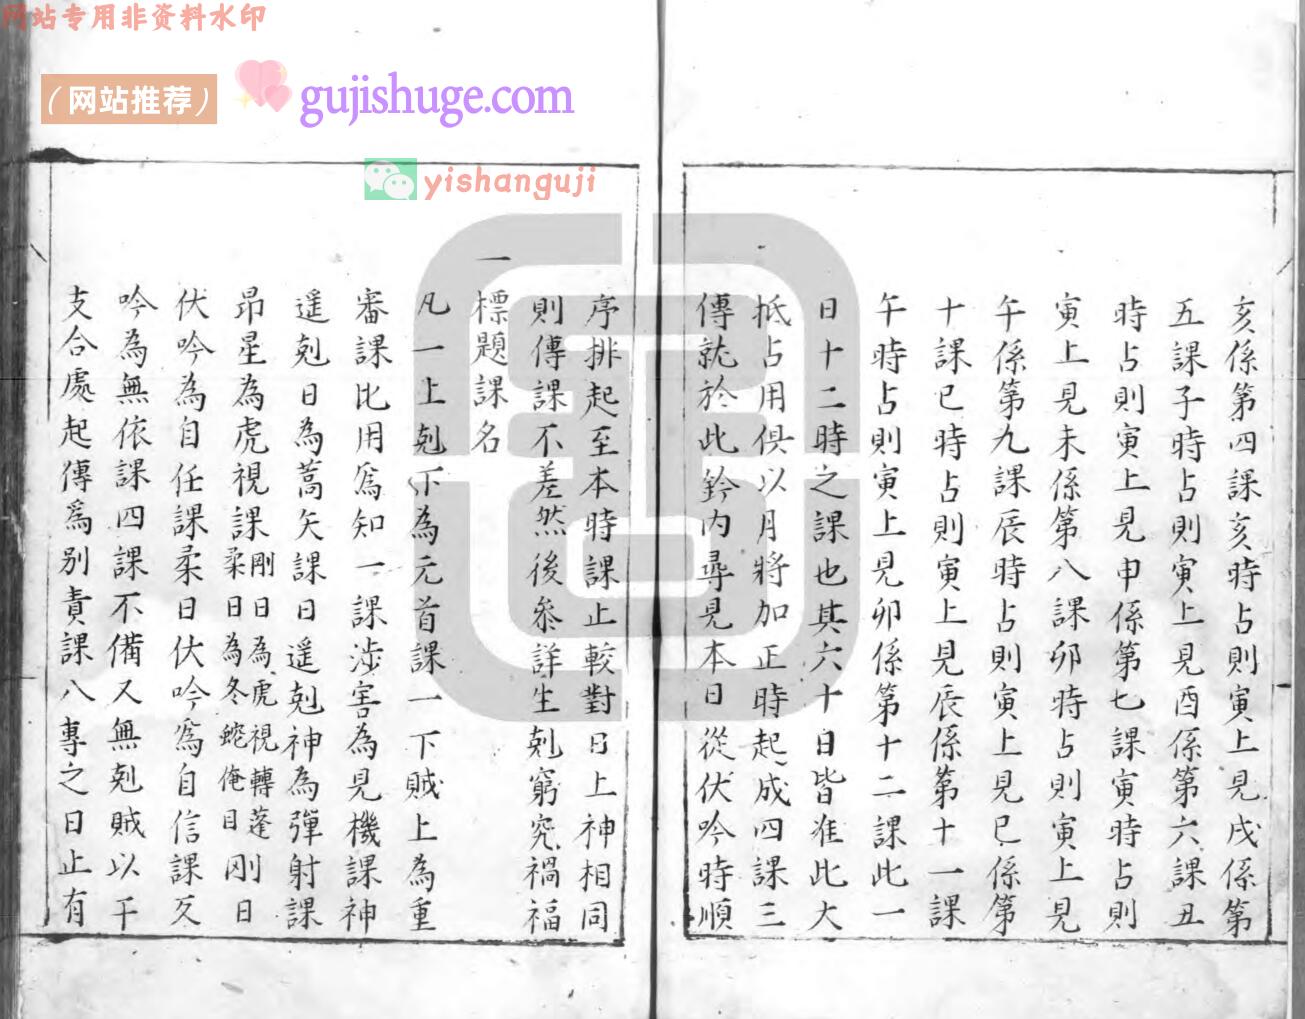 网站专用非资料水印
（网站推荐）
gujishuge.com
yishanguji
亥係第四課亥時占則寅上見戌係第
五課子時占則寅上見酉係第六課丑
時占則寅上見申係第七課寅時占則
寅上見未係第八課卯時占則寅上見
午係第九課辰時占則寅上見巳係第
十課巳時占則寅上見辰係第十一課
午時占則寅上見卯係第十二課此一
日十二時之課也其六十日皆准此大
抵占用俱以月將加正時起成四課三
傳就於此鈐内尋見本日從伏吟時順
序排起至本時課止較對日上神相同
則傳課不差然後叅詳生剋窮究禍福
一標題課名
凡一上剋下為元首課一下賊上為重
審課比用爲知一課渉害為見機課神
遥剋日為蒿矢課日遥剋神為彈射課
昂星為虎視課剛日為虎視轉蓬
柔日為冬蛇俺目剛日
伏吟為自任課柔日伏吟爲自信課反
吟為無依課四課不備又無剋賊以干
支合處起傳爲别責課八專之日止有